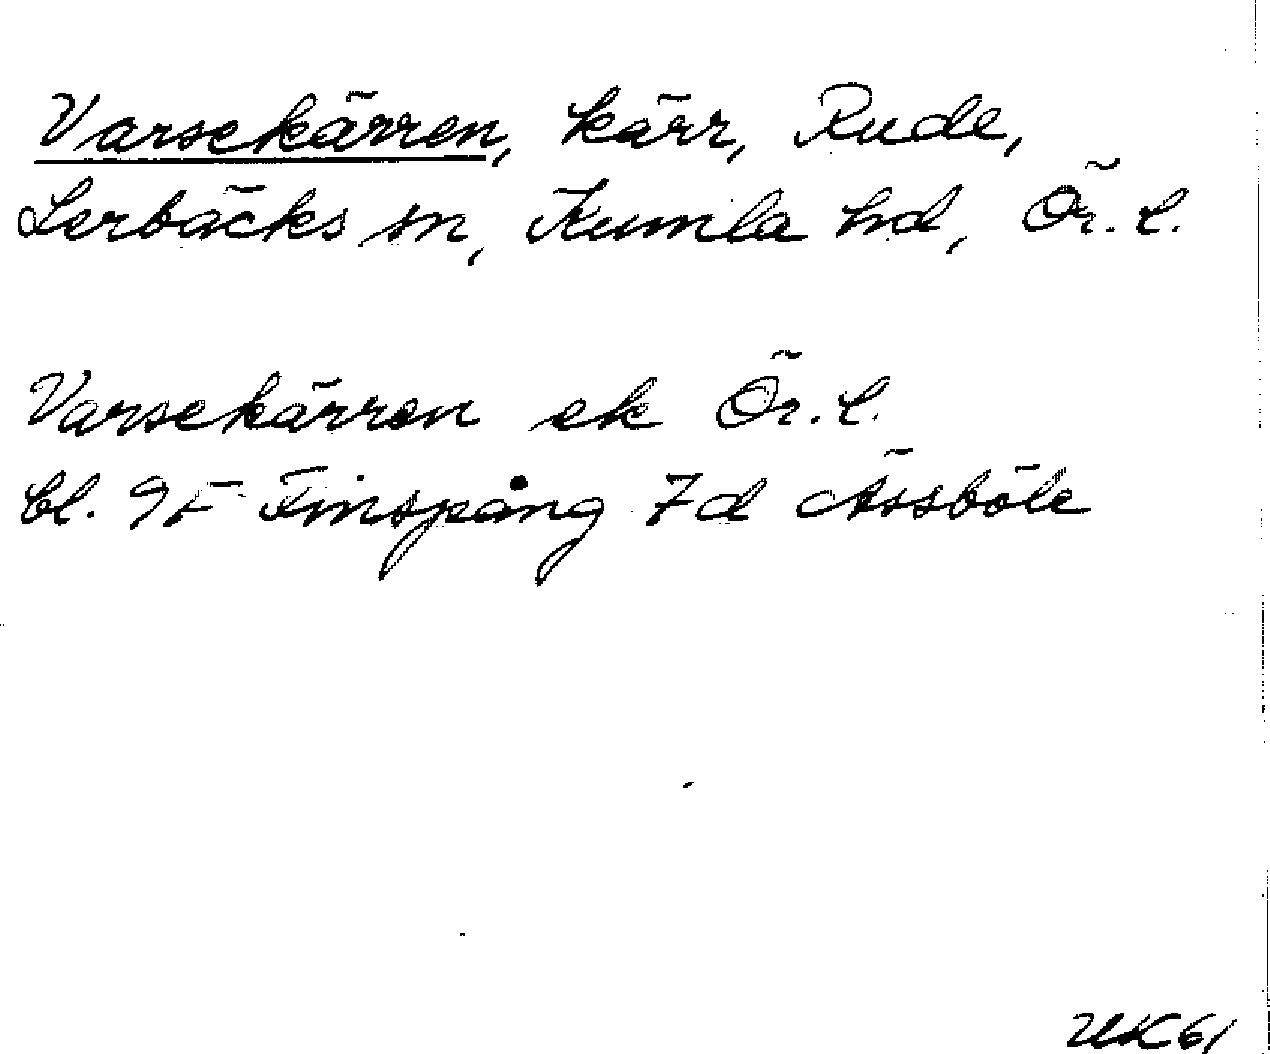 Varsekärren, kärr, Rude,
Lerbäcks sn, Kumla hd, Ör. l.
Varsekärren ek Ör. l.
bl. 9F Finspång 7d Åssböle
UK 61